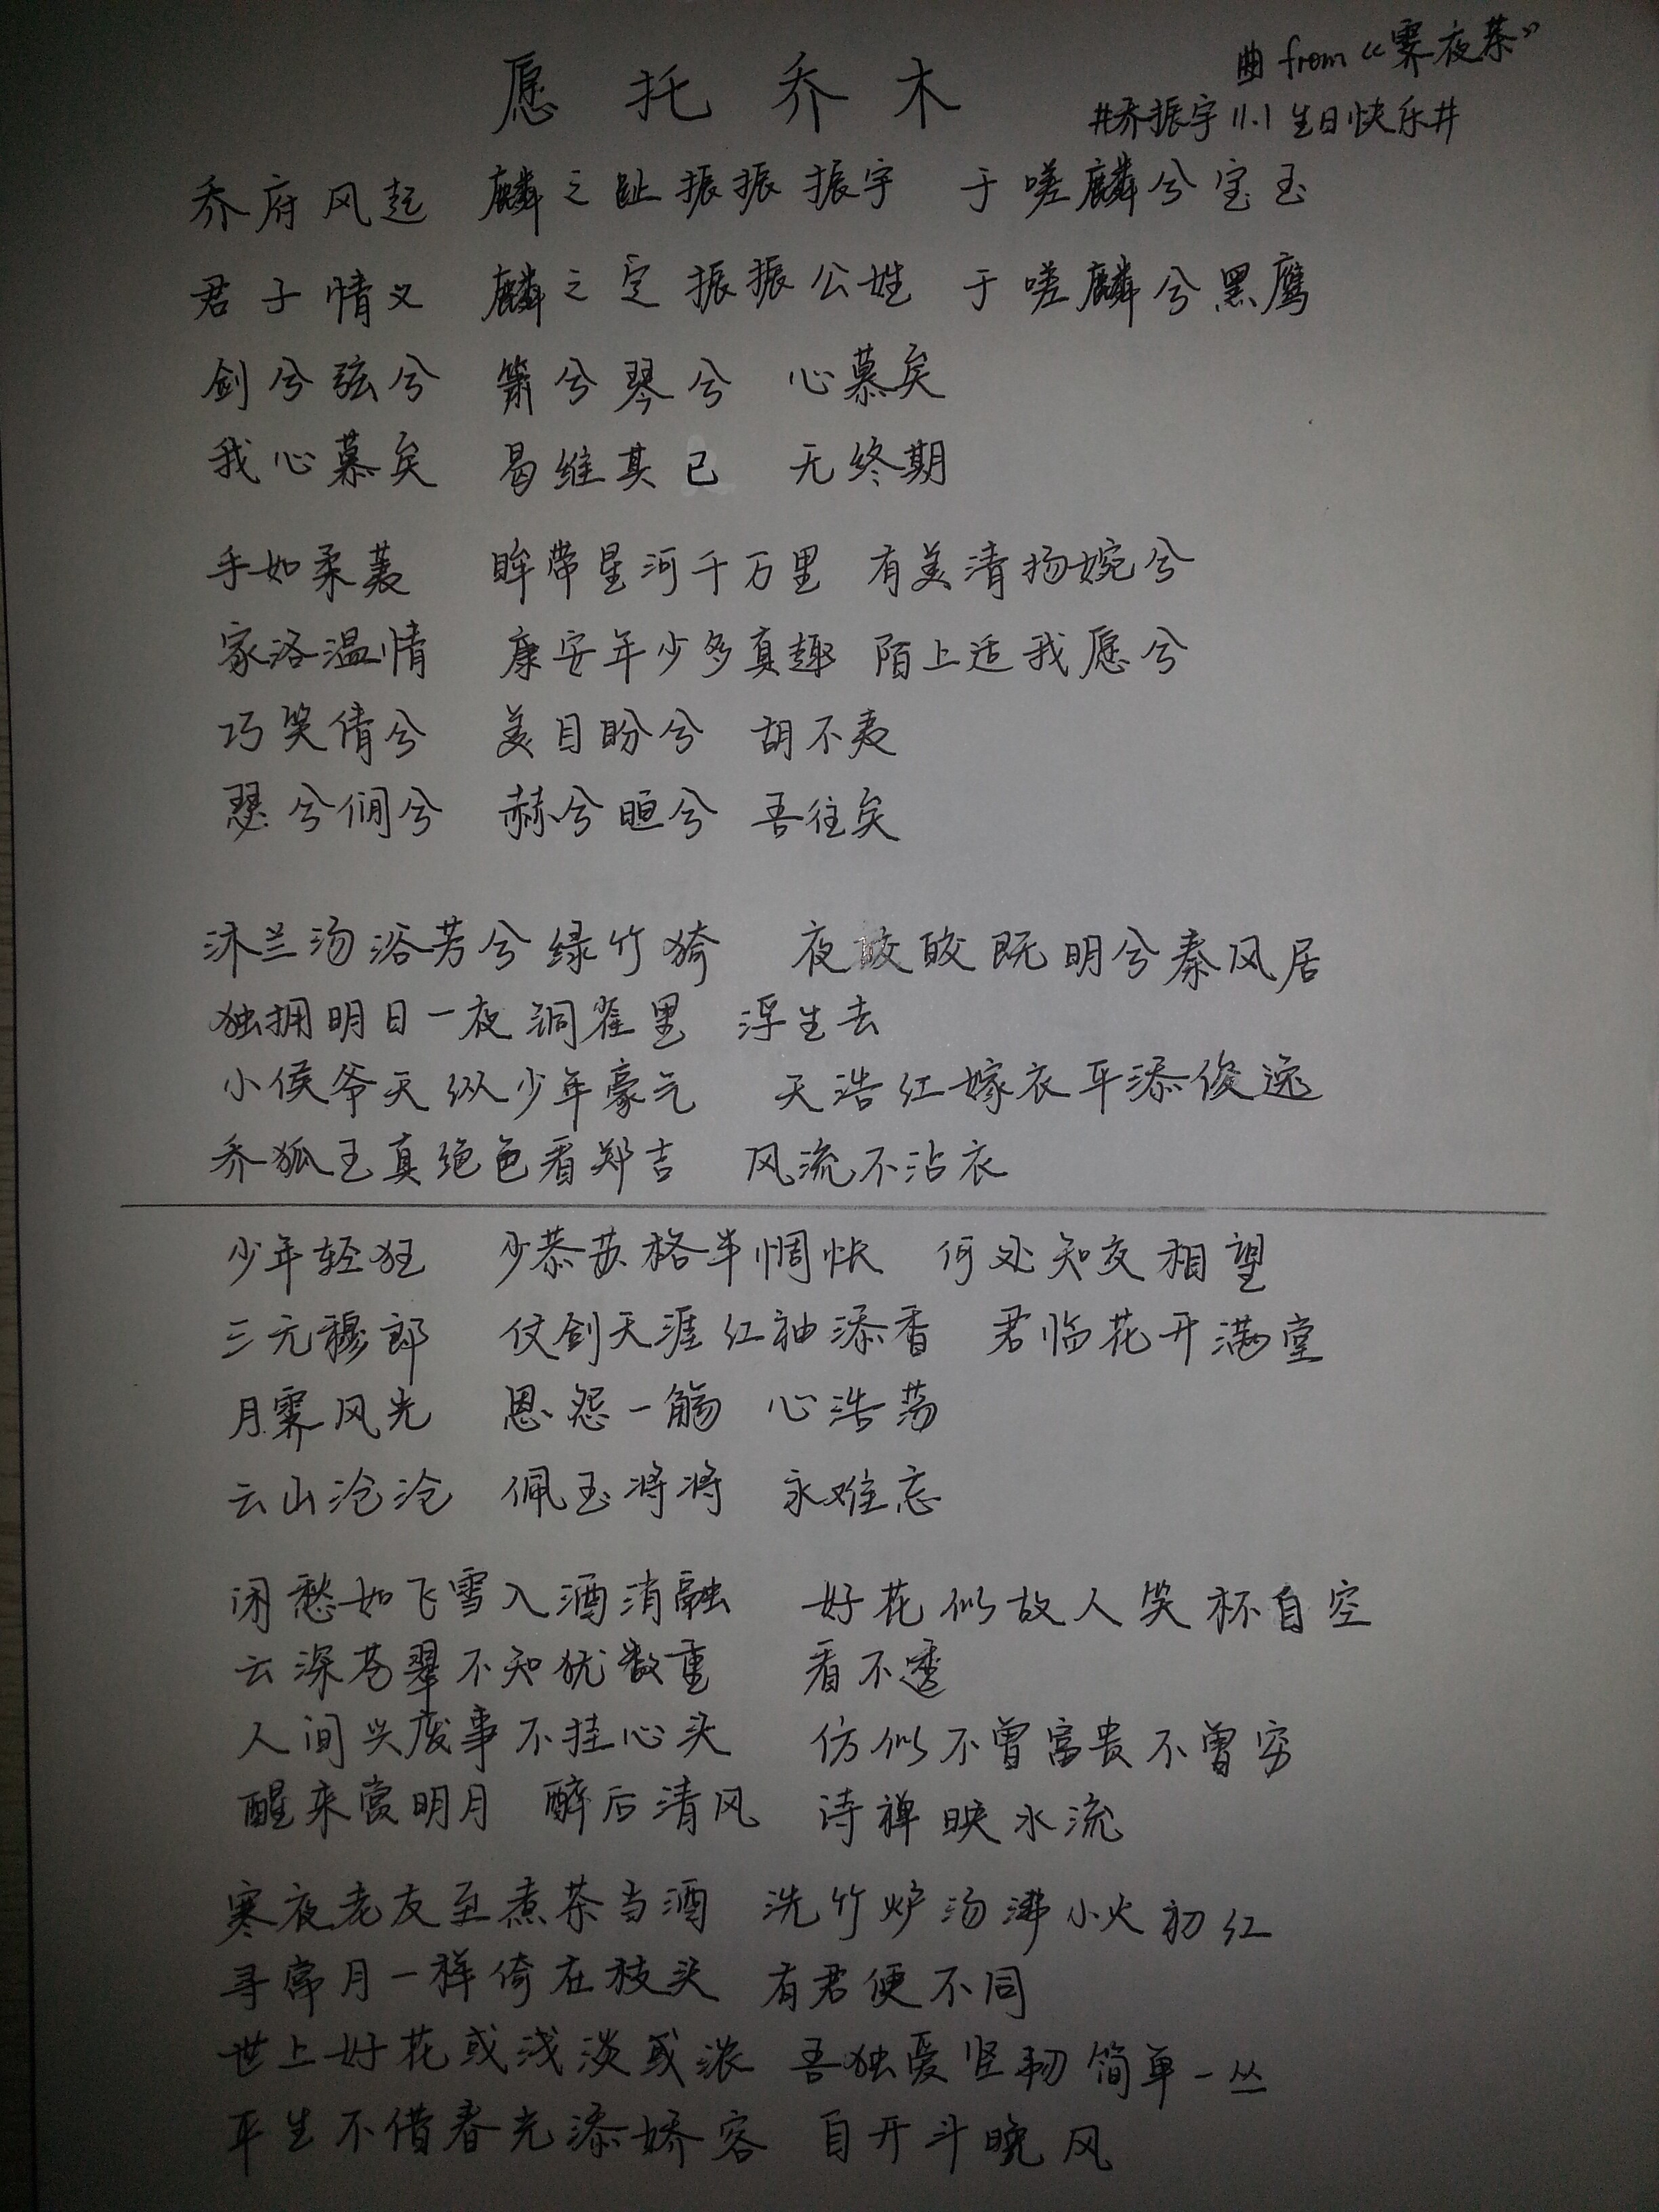 愿托乔木
曲 from “霁夜茶”
#乔振宇 11.1 生日快乐#
乔府风起 麟之趾振振振宇 于嗟麟兮宝玉
君子情义 麟之定振振公姓 于嗟麟兮黑鹰
剑兮弦兮 箫兮琴兮 心慕矣
我心慕矣 曷维其已 无终期
手如柔荑 眸带星河千万里 有美清扬婉兮
家洛温情 康安年少多真趣 陌上适我愿兮
巧笑倩兮 美目盼兮 胡不夷
瑟兮僩兮 赫兮咺兮 吾往矣
沐兰汤浴芳兮绿竹猗 夜皎皎既明兮秦风居
独拥明日一夜洞翟里 浮生去
小侯爷天纵少年豪气 天浩红嫁衣平添俊逸
乔狐王真绝色看郑吉 风流不沾衣
少年轻狂 少恭苏格半惆怅 何处知交相望
三元穆郎 仗剑天涯红袖添香 君临花开满堂
月霁风光 恩怨一觞 心浩荡
云山沧沧 佩玉将将 永难忘
闲愁如飞雪入酒消融 好花似故人笑杯自空
云深苍翠不知犹数重 看不透
人间兴废事不挂心头 仿似不曾富贵不曾穷
醒来赏明月 醉后清风 诗禅映水流
寒夜老友至煮茶当酒 洗竹炉汤沸小火初红
寻常月一样倚在枝头 有君便不同
世上好花或浅淡或浓 吾独爱坚韧简单一丛
平生不借春光添娇容 自开斗晚风